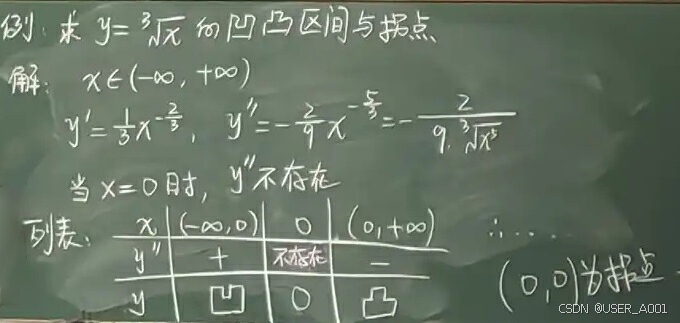 例: 求 y=∛x 的凹凸区间与拐点
解: x∈(-∞, +∞)
y'=1/3 x^(-2/3), y''=-2/9 x^(-5/3)=-2/(9·∛x⁵)
当 x=0时, y''不存在
列表: x (-∞,0) 0 (0,+∞) ∴ ....
y'' + 不存在 -
y 凹 0 凸 (0,0)为拐点.
CSDN @USER_A001